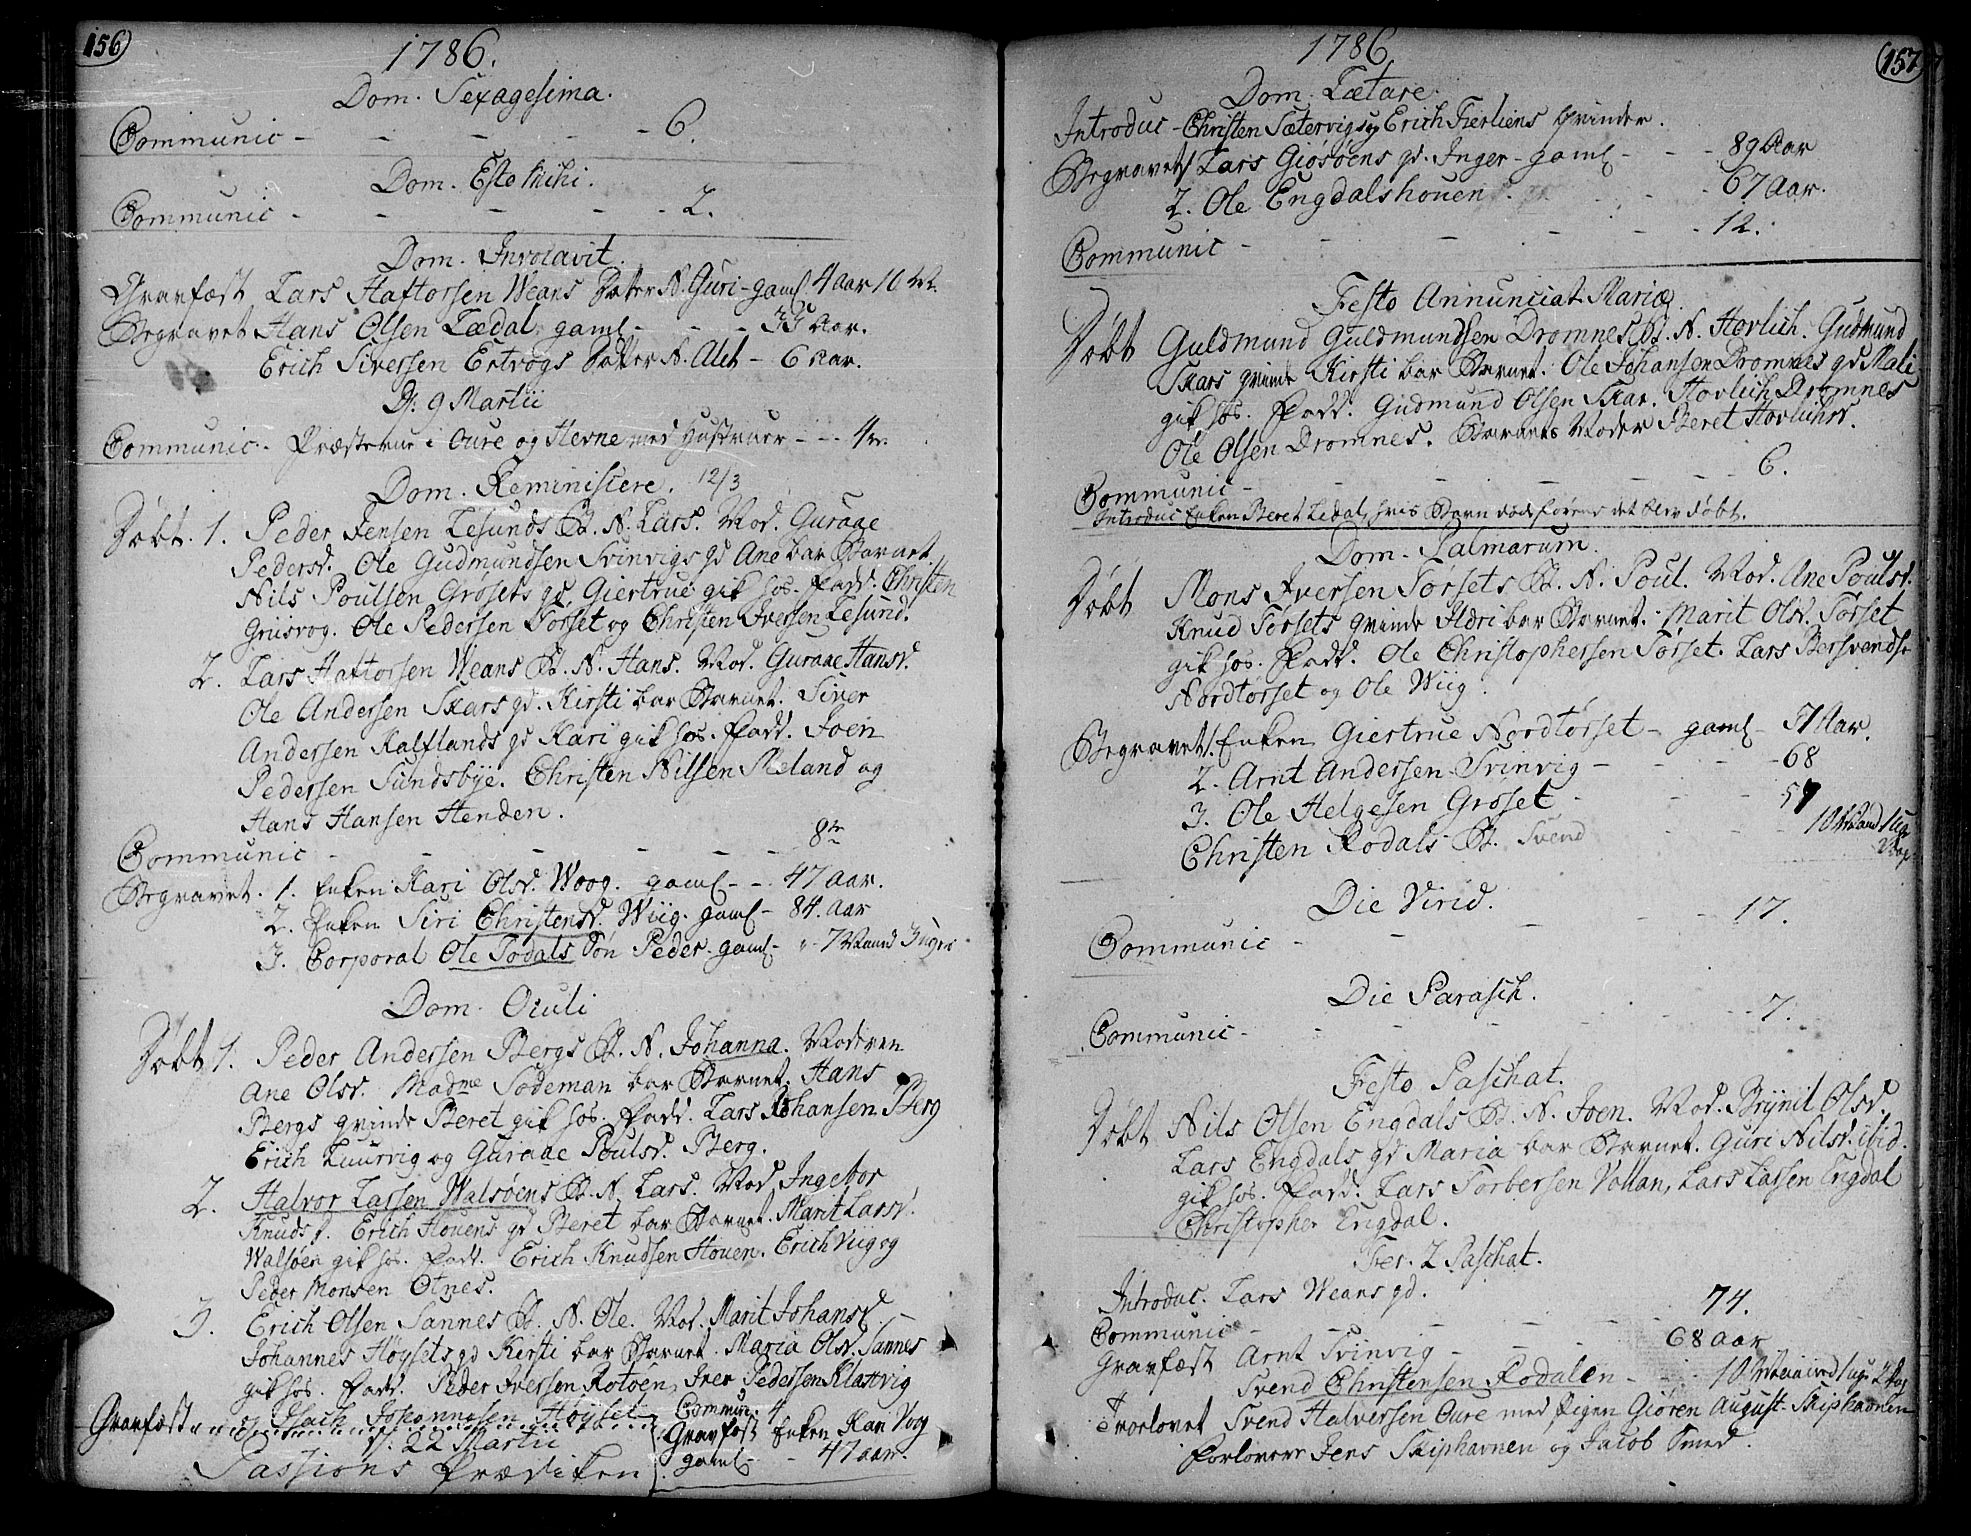 156
1786.
Dom. Sexagesima.
Communic - - - - - 6.
Dom. Esto Mihi.
Communic - - - - - 2.
Dom. Invocavit.
Gravfæst Lars Haftorsen Weans Datter N. Guri - gaml 4 Aar 10 M.
Begravet Hans Olsen Lædal gaml - - - 33 Aar.
Erich Siversen Ertvogs Datter N. Alet - 6 Aar.
D: 9 Martii
Communic - Præsterne i Oure og Hevne med Hustruer - - - 4re
Dom. Reminiscere. 12/3
Døbt. 1. Peder Jensen Lesunds B. N. Lars. Mod. Guraae
Pedersd. Ole Gudmundsen Svinvigs qd Ane bar Barnet
Nils Poulsen Grøsets qd. Giertrue gik hos. Fadd. Christen
Griisvog. Ole Pedersen Torset og Christen Iversen Lesund.
2. Lars Haftorsen Weans B. N. Hans. Mod. Guraae Hansd.
Ole Andersen Skars qd. Kirsti bar Barnet. Siver
Andersen Kalflands qd Kari gik hos. Fadd. Joen
Pedersen Sundsbye. Christen Nilsen Meland og
Hans Hansen Henden.
Communic - - - - - 8te
Begravet. 1. Enken Kari Olsd. Woog. gaml - - 47 Aar.
2. Enken Siri Christensd. Wiig. gaml - 84. Aar
3. Corporal Ole Todals Søn Peder - gaml - " - 7 Maaned 3 uger
Dom. Oculi
Døbt 1. Peder Andersen Bergs B. N. Johanna. Moderen
Ane Olsd. Madme Sodeman bar Barnet. Hans
Bergs qvinde Beret gik hos. Fadd. Lars Johansen Berg
Erich Luurvig og Guraae Poulsd. Berg.
2. Halvor Larsen Walsøens B. N. Lars. Mod. Ingebor
Knudsd. Erich Houens qd Beret bar Barnet. Marit Larsd.
Walsøen gik hos. Fadd. Erich Knudsen Houen. Erich Viig og
Peder Monsen Otnes.
3. Erich Olsen Sannes B. N. Ole. Mod. Marit Johansd.
Johannes Høysets qd Kirsti bar Barnet. Maria Olsd. Sannes
gik hos. Fadd. Peder Iversen Rotøen, Iver Pedersen Klaxvig
og Isach Johannesen Høyset
Commun. 4
Gravfæst
D: 22 Martii
Passions Prædiken
Gravfæst Enken Kari Voog
gaml - - 47 Aar.
157
1786
Dom. Lætare.
Introduc - Christen Sætervigs og Erich Fierliens qvinder.
Begravet 1 Lars Giøsøens qd. Inger - gaml - - - 89 Aar
2. Ole Engdalshouen - - 67 Aar.
Communic - - - - - 12.
Festo Annunciat Mariæ
Døbt Guldmund Guldmundsen Dromnes B. N. Hovlich. Gudmund
Skars qvinde Kirsti bar Barnet. Ole Johansen Dromnes qd Mali
gik hos. Fadd. Gudmund Olsen Skar. Hovlich Dromnes
Ole Olsen Dromnes. Barnets Moder Beret Hovlichsd.
Communic - - - - - 6.
Introduc Enken Beret Ledal, hvis Barn døde førend det blev døbt.
Dom. Palmarum.
Døbt Mons Iversen Torsets B. N. Poul. Mod. Ane Poulsd.
Knud Torsets qvinde Ildri bar Barnet. Marit Olsd. Torset
gik hos. Fadd. Ole Christophersen Torset. Lars Bersvends.
Nordtorset og Ole Wiig.
Begravet 1. Enken Giertrue Nordtorset - gaml - 71 Aar.
2. Arnt Andersen Svinvig - - - - 68
3. Ole Helgesen Grøset - - - 57
Christen Rodals B. Svend - - - 10 Maaned 1 uge 2 Dage
Die Virid.
Communic - - - - - 17.
Die Parasch.
Communic - - - - - 7.
Festo Paschat.
Døbt Nils Olsen Engdals B. N. Joen. Mod. Brynil Olsd.
Lars Engdals qd Maria bar Barnet. Guri Nilsd. ibid.
gik hos. Fadd. Lars Torbersen Vollan, Lars Larsen Engdal
Christopher Engdal.
Fer. 2 Paschat.
Introduc. Lars Weans qd.
Communic - - - - - 74.
Gravfæst Arnt Svinvig - - - - 68 Aar
Svend Christensen Rodalen - - 10 Maaned 1 uge 2 Dag
Trorlovet Svend Halversen Oure med Pigen Giøren August. Skiphavnen
Forlovere Jens Skiphavnen og Jacob Smed.